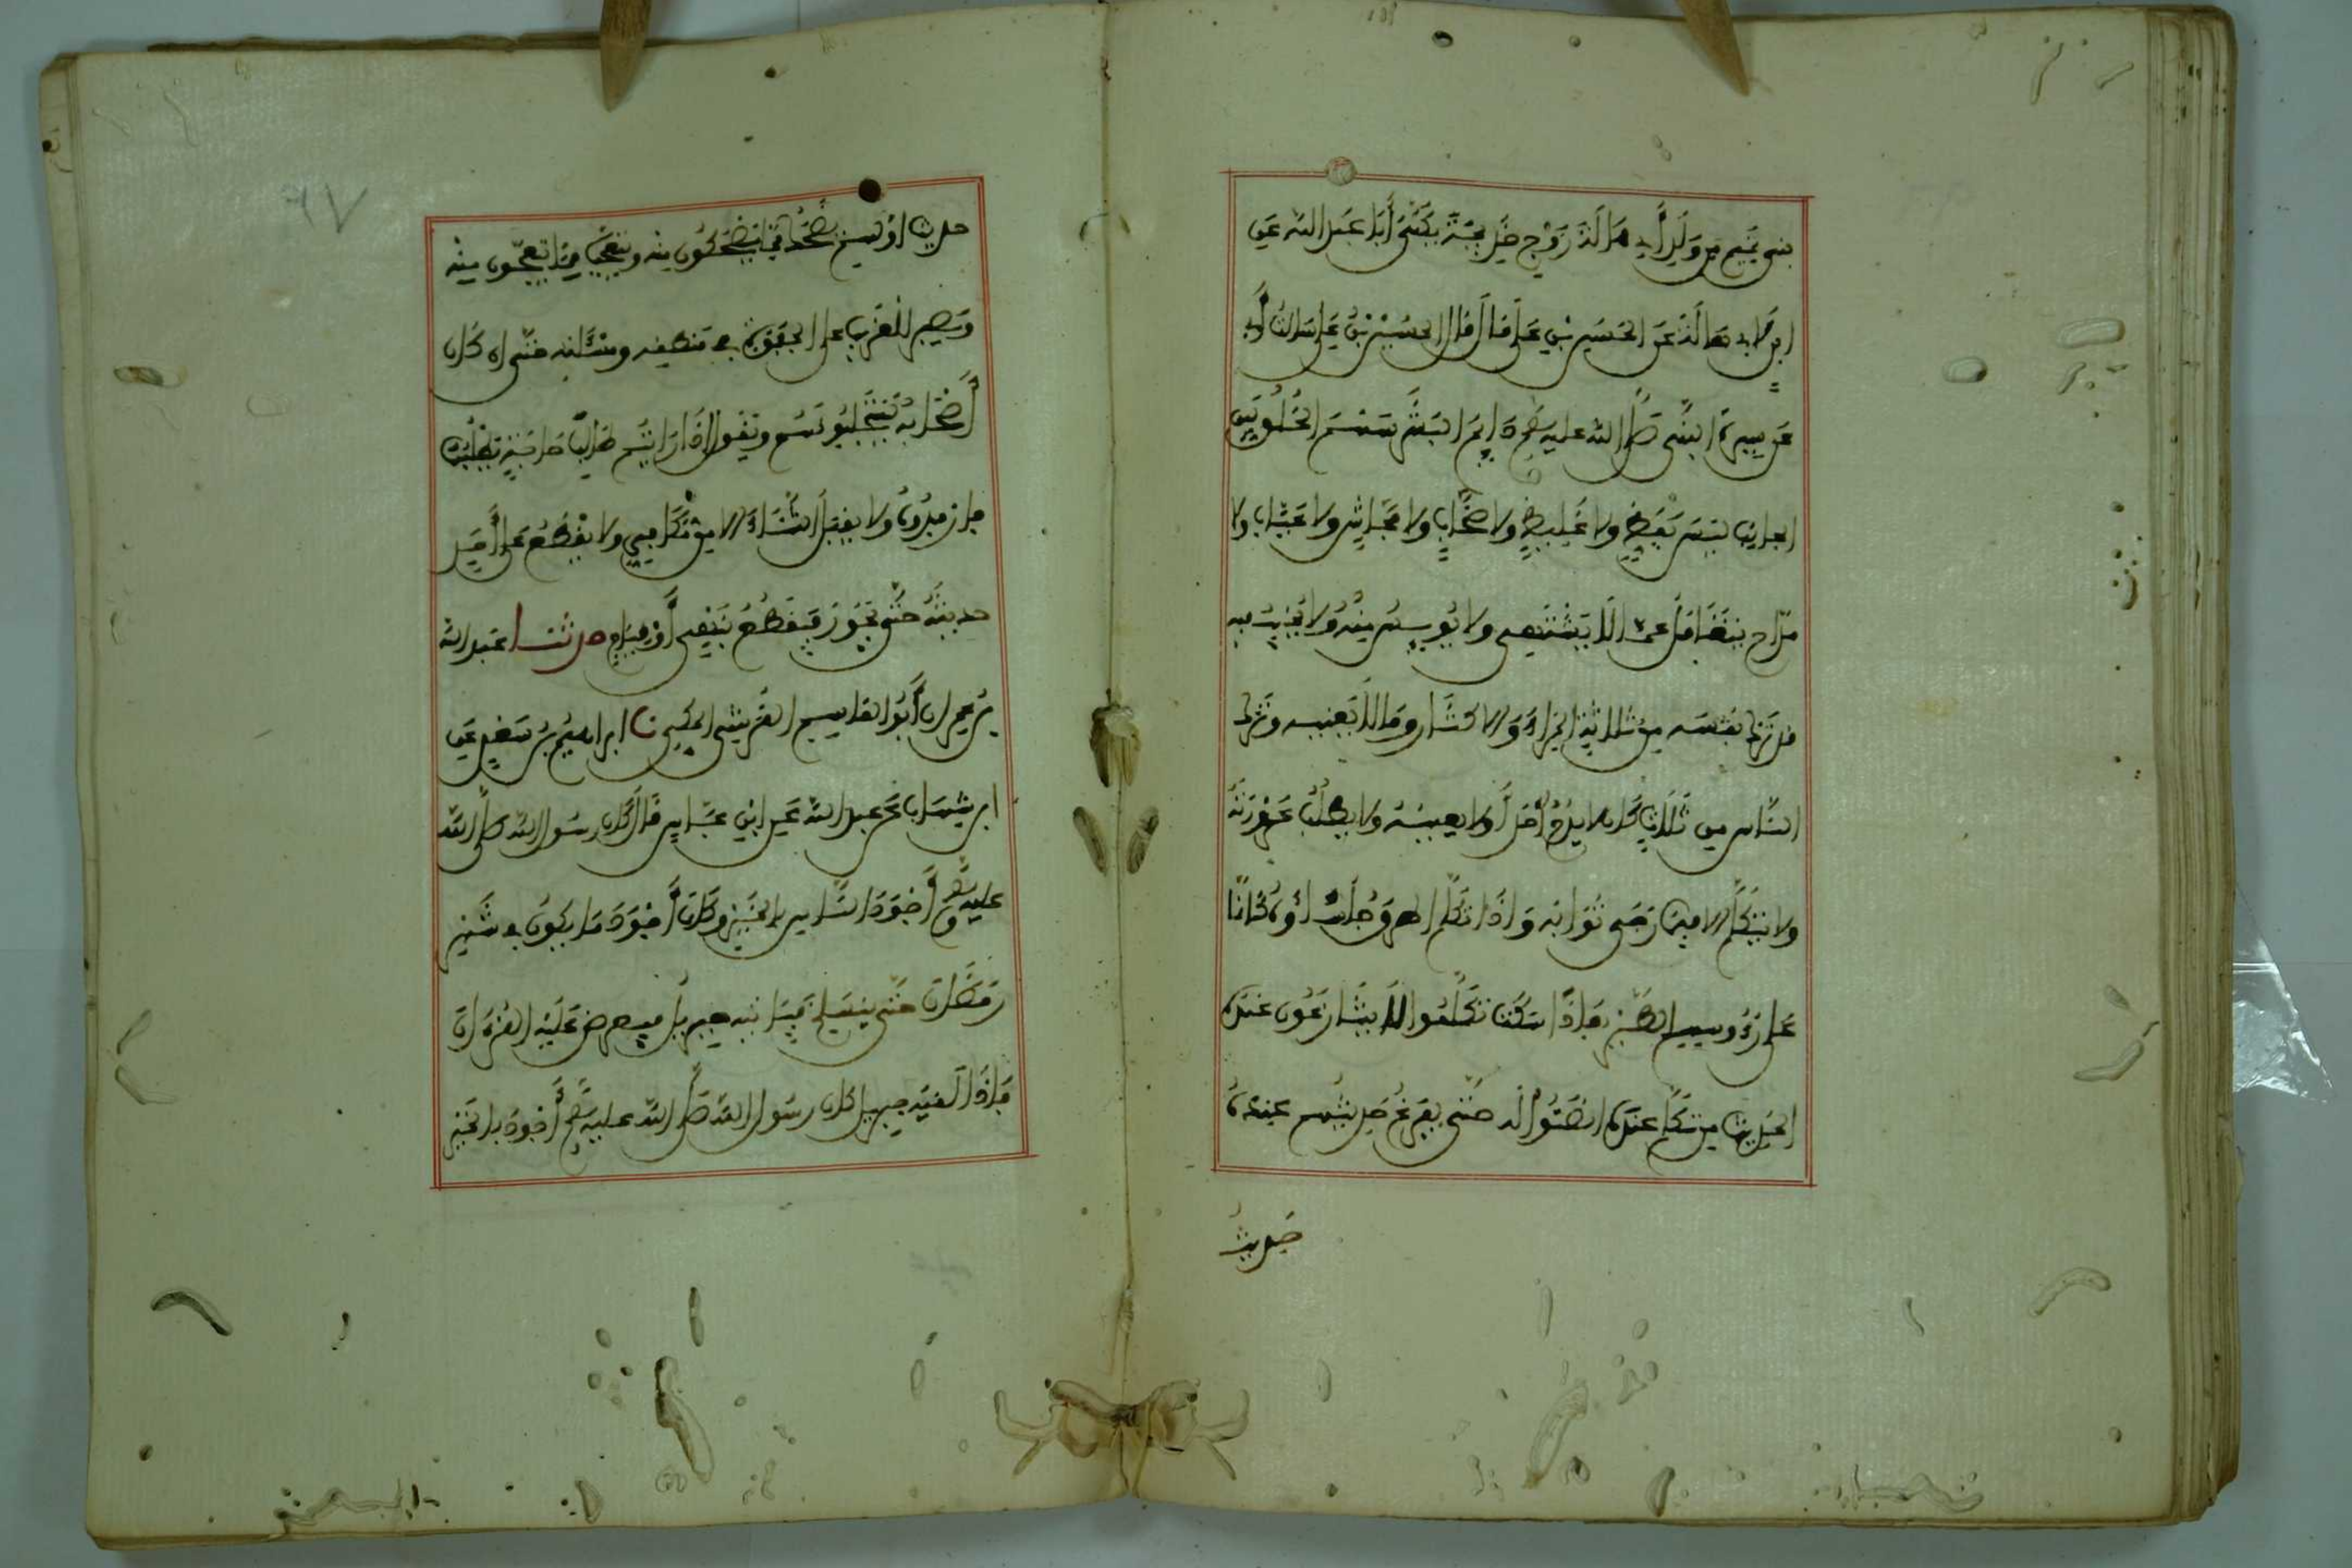 بني تميم من ولد أبي هالة زوج خديجة يكنى أبا عبد الله عن
ابن لابي هالة عن الحسن بن علي قال قال الحسين بن علي سالت أبي
عن سيرة النبي صلى الله عليه وسلم دايم البشر سهل الخلق لين
الجانب ليس بفظ ولا غليظ ولا صخاب ولا فحاش ولا عياب ولا
مزاح يتغافل عما لا يشتهي ولا يويس منه ولا يخيب فيه
قد ترك نفسه من ثلاثة المراء والاكثار وما لا يعنيه وترك
الناس من ثلاث كان لا يذم أحدا ولا يعيبه ولا يطلب عورته
ولا يتكلم الا فيما رجى ثوابه واذا تكلم اطرق جلساؤه كانما
على رءوسهم الطير فاذا سكت تكلموا لا يتنازعون عنده
الحديث من تكلم عنده انصتوا له حتى يفرغ حديثهم عنده
حديث
حديث أولهم يضحك مما يضحكون منه ويتعجب مما يتعجبون منه
ويصبر للغريب على الجفوة في منطقه ومسئلته حتى ان كان
أصحابه يستجلبونهم ويقول اذا رايتم طالب حاجة يطلبها
فارفدوه ولا يقبل الثناء الا من مكافي ولا يقطع على أحد
حديثه حتى يجوز فيقطعه بنهي أو قيام حدثنا عبد الله
بن عمران أبو القاسم القرشي المكي نا ابراهيم بن سعد عن
ابن شهاب عن عبيد الله عن ابن عباس قال كان رسول الله صلى الله
عليه وسلم أجود الناس بالخير وكان أجود ما يكون في شهر
رمضان حتى ينسلخ فياتيه جبريل فيعرض عليه القرءان
فاذا لقيه جبريل كان رسول الله صلى الله عليه وسلم أجود بالخير